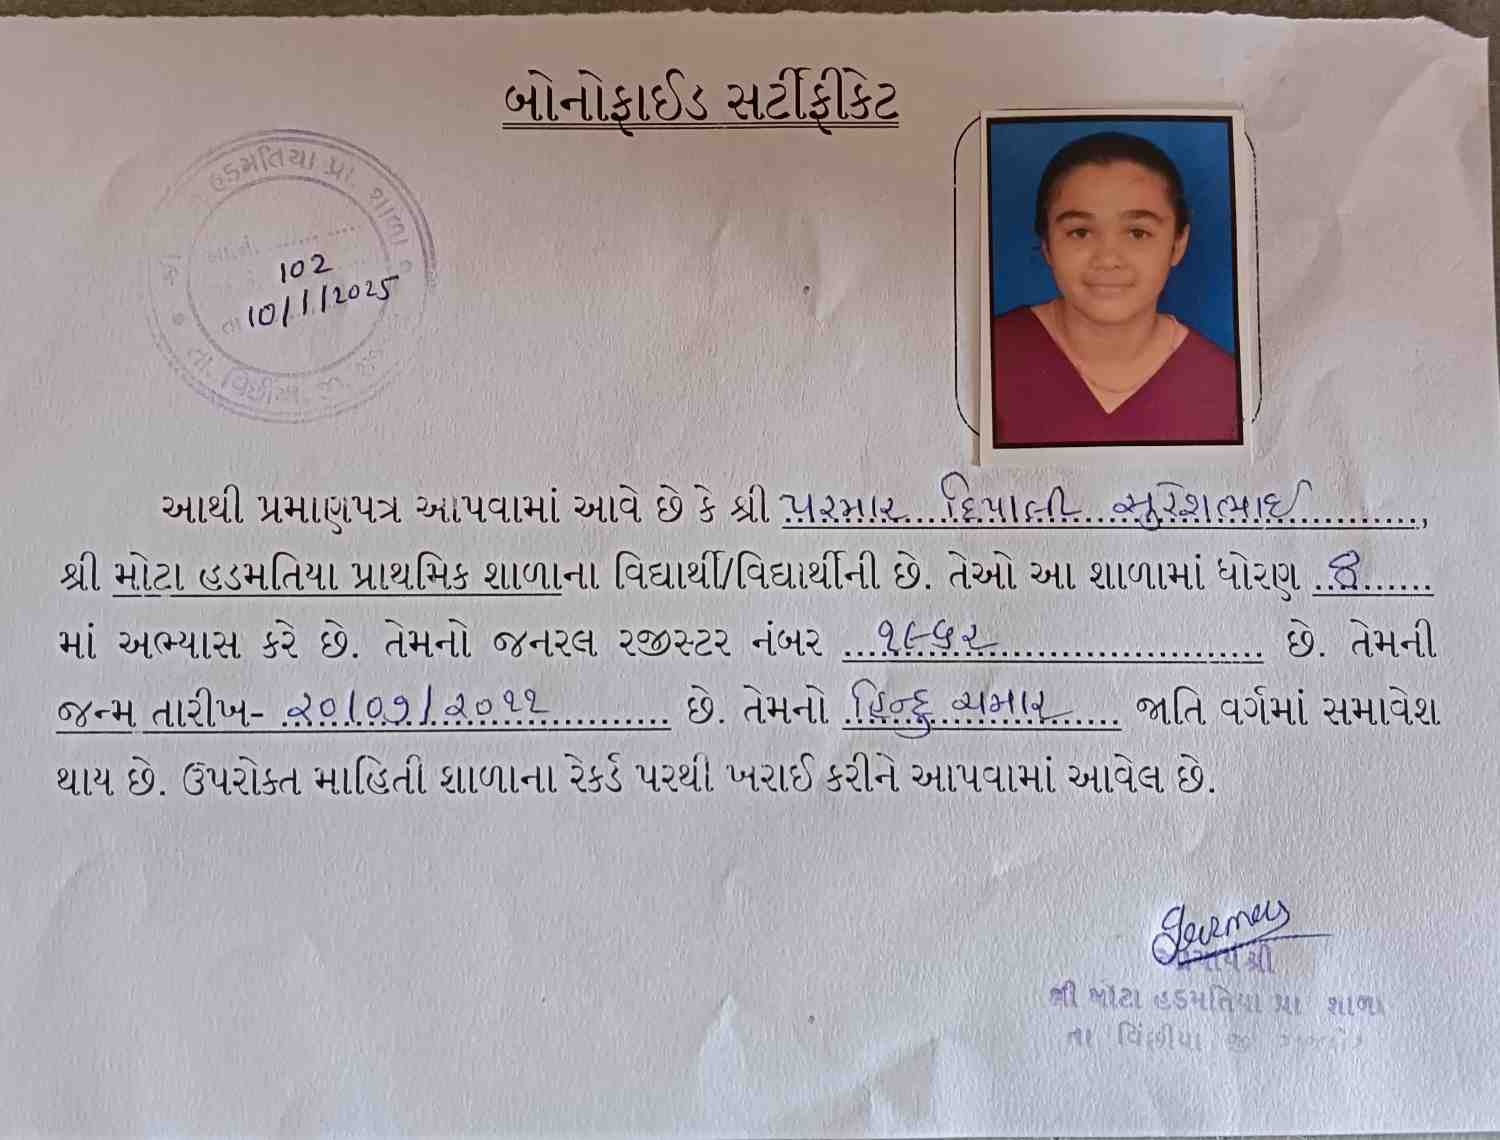 બોનોફાઈડ સર્ટીફીકેટ
હડમતિયા પ્રા. શાળા
102
તા 10/1/2025
તા. વિંછીયા
આથી પ્રમાણપત્ર આપવામાં આવે છે કે શ્રી પરમાર દિપાલી સુરેશભાઈ,
શ્રી મોટા હડમતિયા પ્રાથમિક શાળાના વિદ્યાર્થી/વિદ્યાર્થીની છે. તેઓ આ શાળામાં ધોરણ ૪
માં અભ્યાસ કરે છે. તેમનો જનરલ રજીસ્ટર નંબર ૧૯૫૨ છે. તેમની
જન્મ તારીખ- ૨૦/૦૭/૨૦૧૧ છે. તેમનો હિન્દુ ચમાર જાતિ વર્ગમાં સમાવેશ
થાય છે. ઉપરોક્ત માહિતી શાળાના રેકર્ડ પરથી ખરાઈ કરીને આપવામાં આવેલ છે.
આચાર્યશ્રી
શ્રી મોટા હડમતિયા પ્રા શાળા
તા વિંછીયા જી